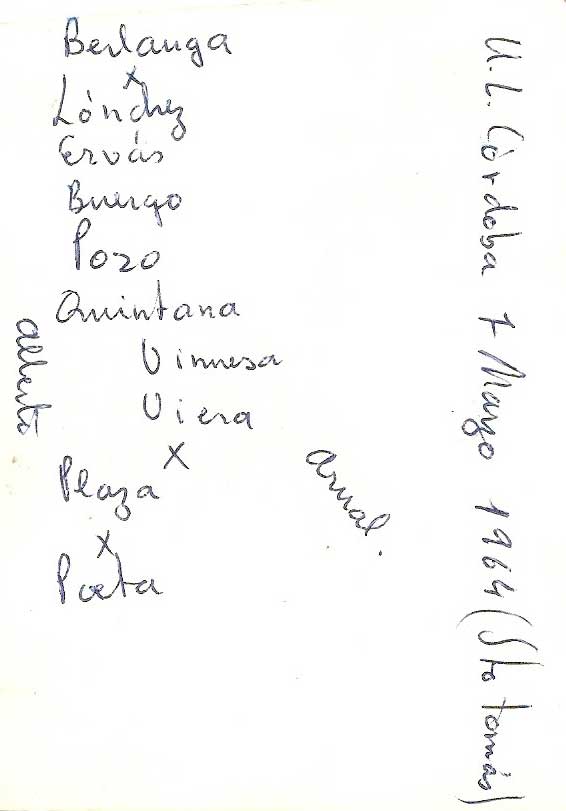 Berlanga
x
Lónchez
Ervás
Buergo
Pozo
Quintana
Vinuesa
Viera
x
Plaza
x
Poeta
Alberto
Arnal.
U.L. Córdoba 7 Marzo 1964 (Sto tomás)